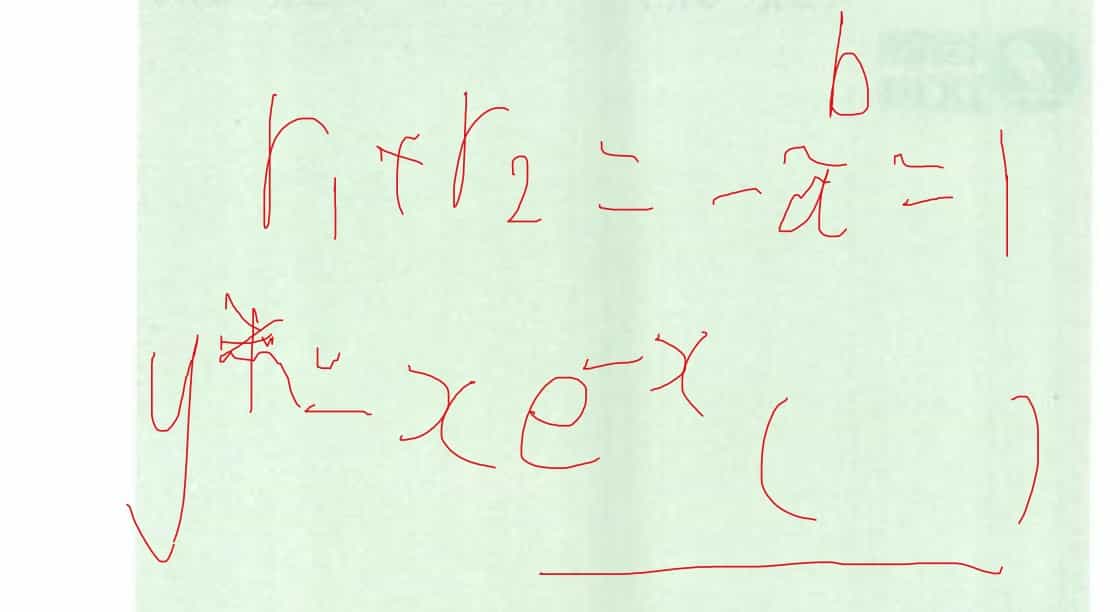 r₁ + r₂ = -b/a = 1
y* = xe⁻ˣ( )